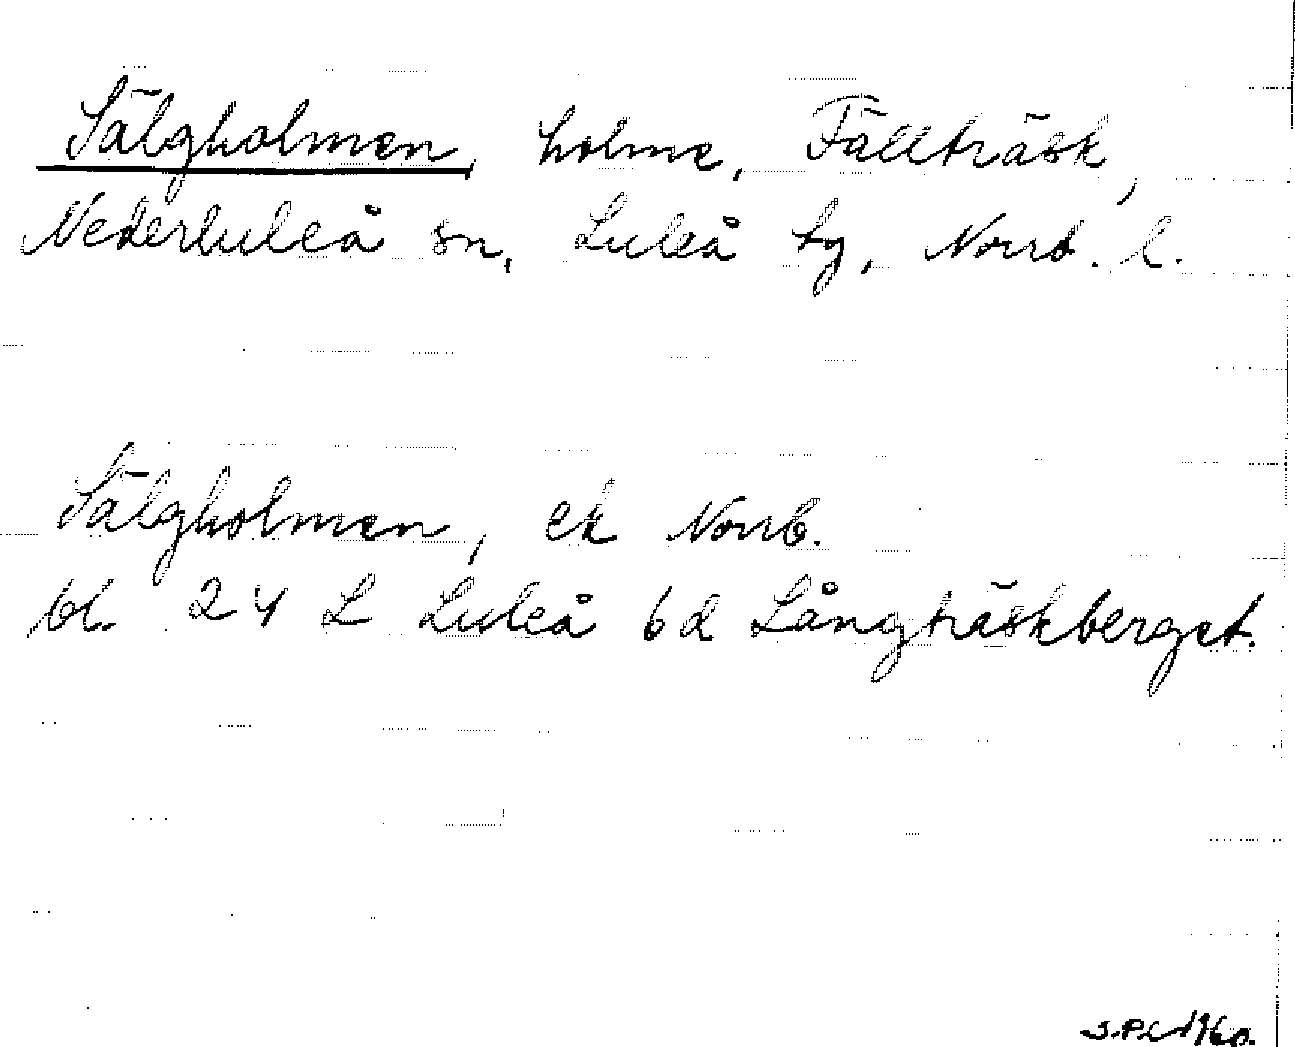 Sälgholmen, holme, Fällträsk,
Nederluleå sn, Luleå tg, Norrb. l.
Sälgholmen, ek Norrb.
bl. 24 L Luleå 6d Långträskberget.
1960.